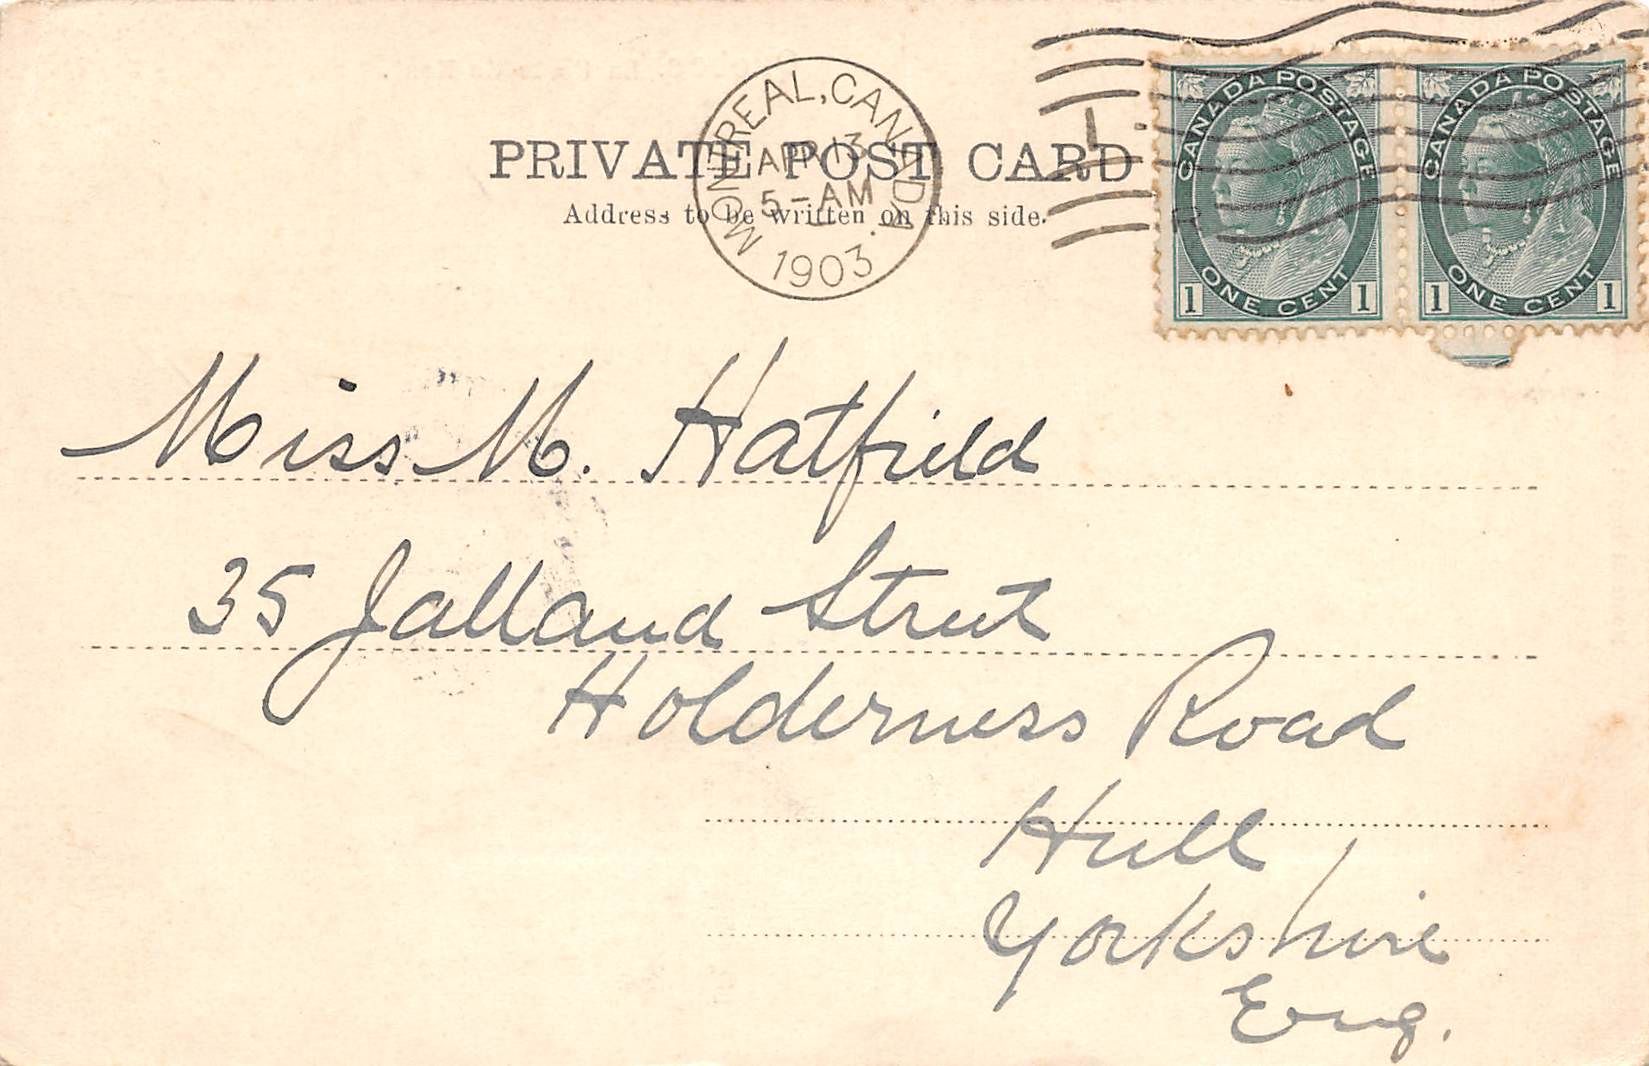 PRIVATE POST CARD
Address to be written on this side.
MONTREAL, CANADA.
APR 13
5-AM
1903
CANADA POSTAGE
ONE CENT
1 1
CANADA POSTAGE
ONE CENT
1 1
Miss M. Hatfield
35 Jalland Street
Holderness Road
Hull
Yorkshire
Eng.